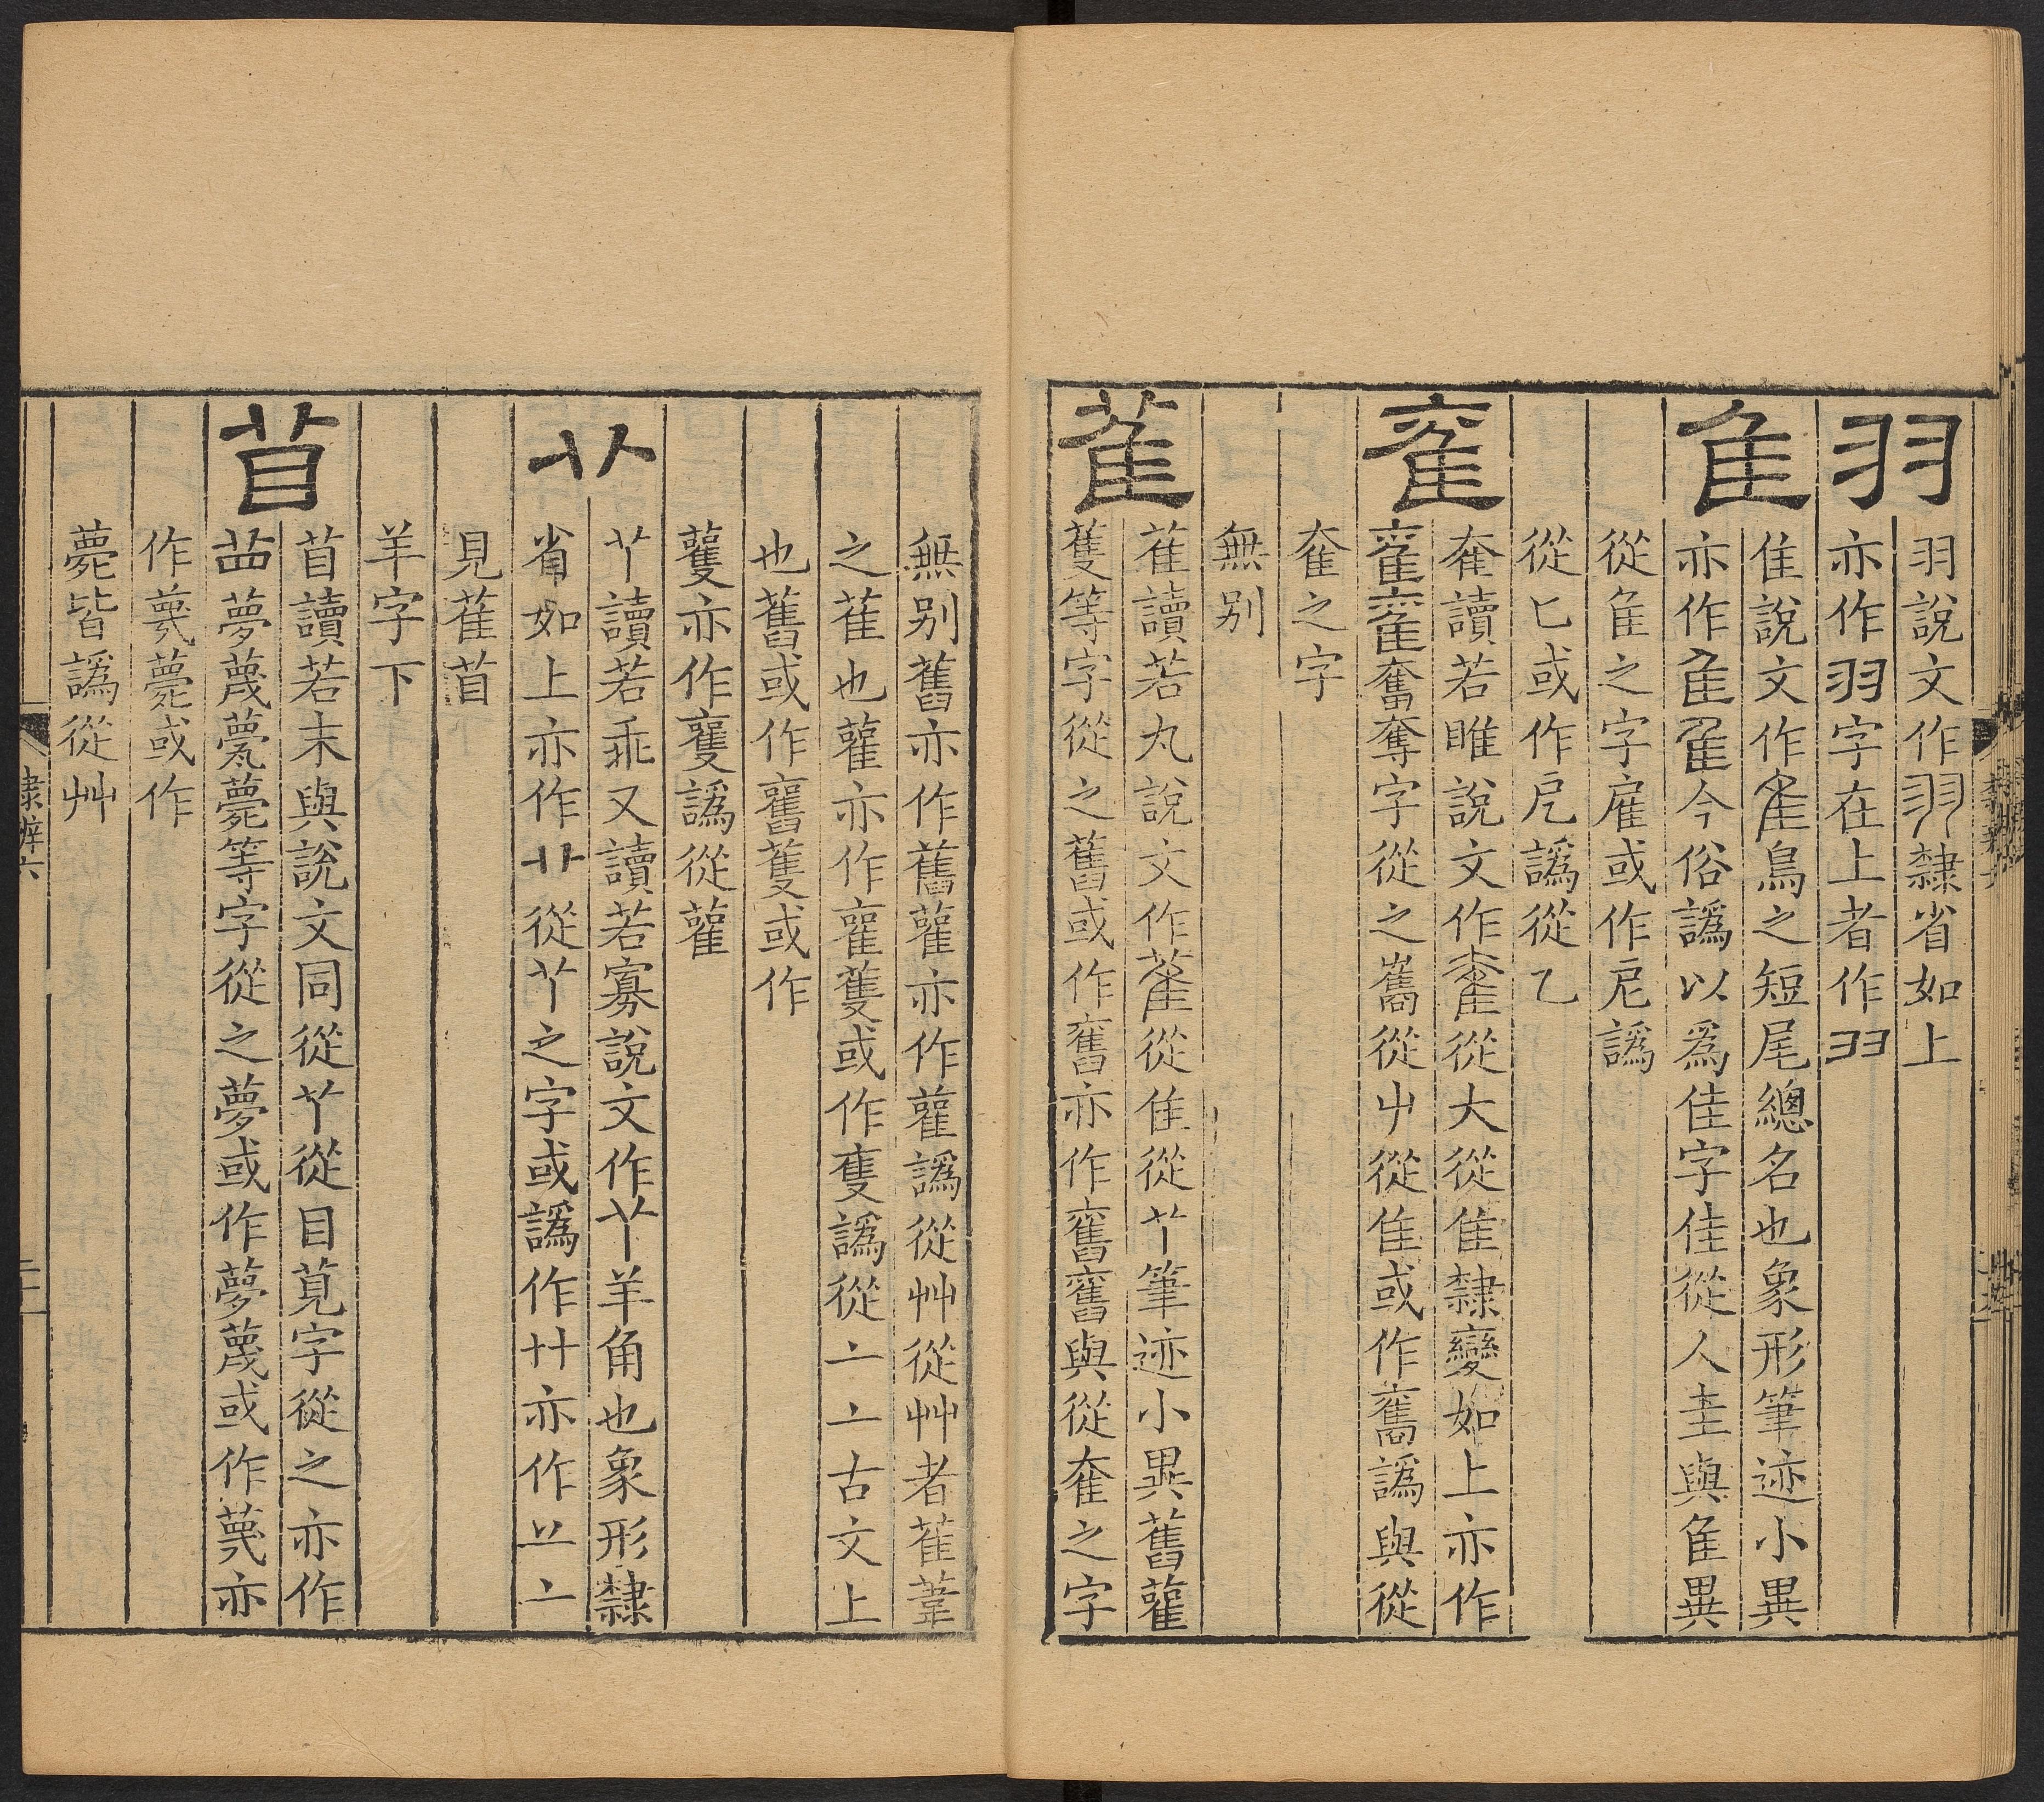 羽
羽說文作羽隸省如上
亦作羽字在上者作
隹
隹說文作隹鳥之短尾總名也象形筆迹小異
亦作隹今俗譌以爲佳字佳從人圭與隹異
從隹之字雇或作譌
從匕或作譌從乙
奞
奞讀若睢說文作奞從大從隹隸變如上亦作
奞奮奪字從之巂從屮從隹或作譌與從
奞之字
無别
雈
雈讀若丸說文作雈從隹從𦫳筆迹小異舊雚
蒦等字從之舊或作亦作與從奞之字
無别舊亦作舊雚亦作雚譌從艸從艸者萑葦
之萑也雚亦作蒦或作譌從亠亠古文上
也舊或作蒦或作
蒦亦作譌從雚
𦫳
𦫳讀若乖又讀若寡說文作𦫳羊角也象形隸
省如上亦作從𦫳之字或譌作廾亦作䒑亠
見雈苜
羊字下
苜
苜讀若末與說文同從𦫳從目莧字從之亦作
夢蔑薨等字從之夢或作夢蔑或作亦
作薨或作
薨皆譌從艸
隸辨六